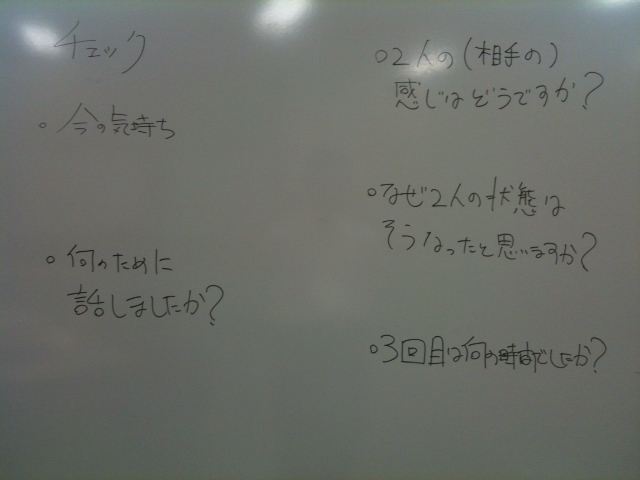 チェック
○今の気持ち
○何のために
話しましたか?
○2人の(相手の)
感じはどうですか?
○なぜ2人の状態は
そうなったと思いますか?
○3回目は何の時間でしたか?